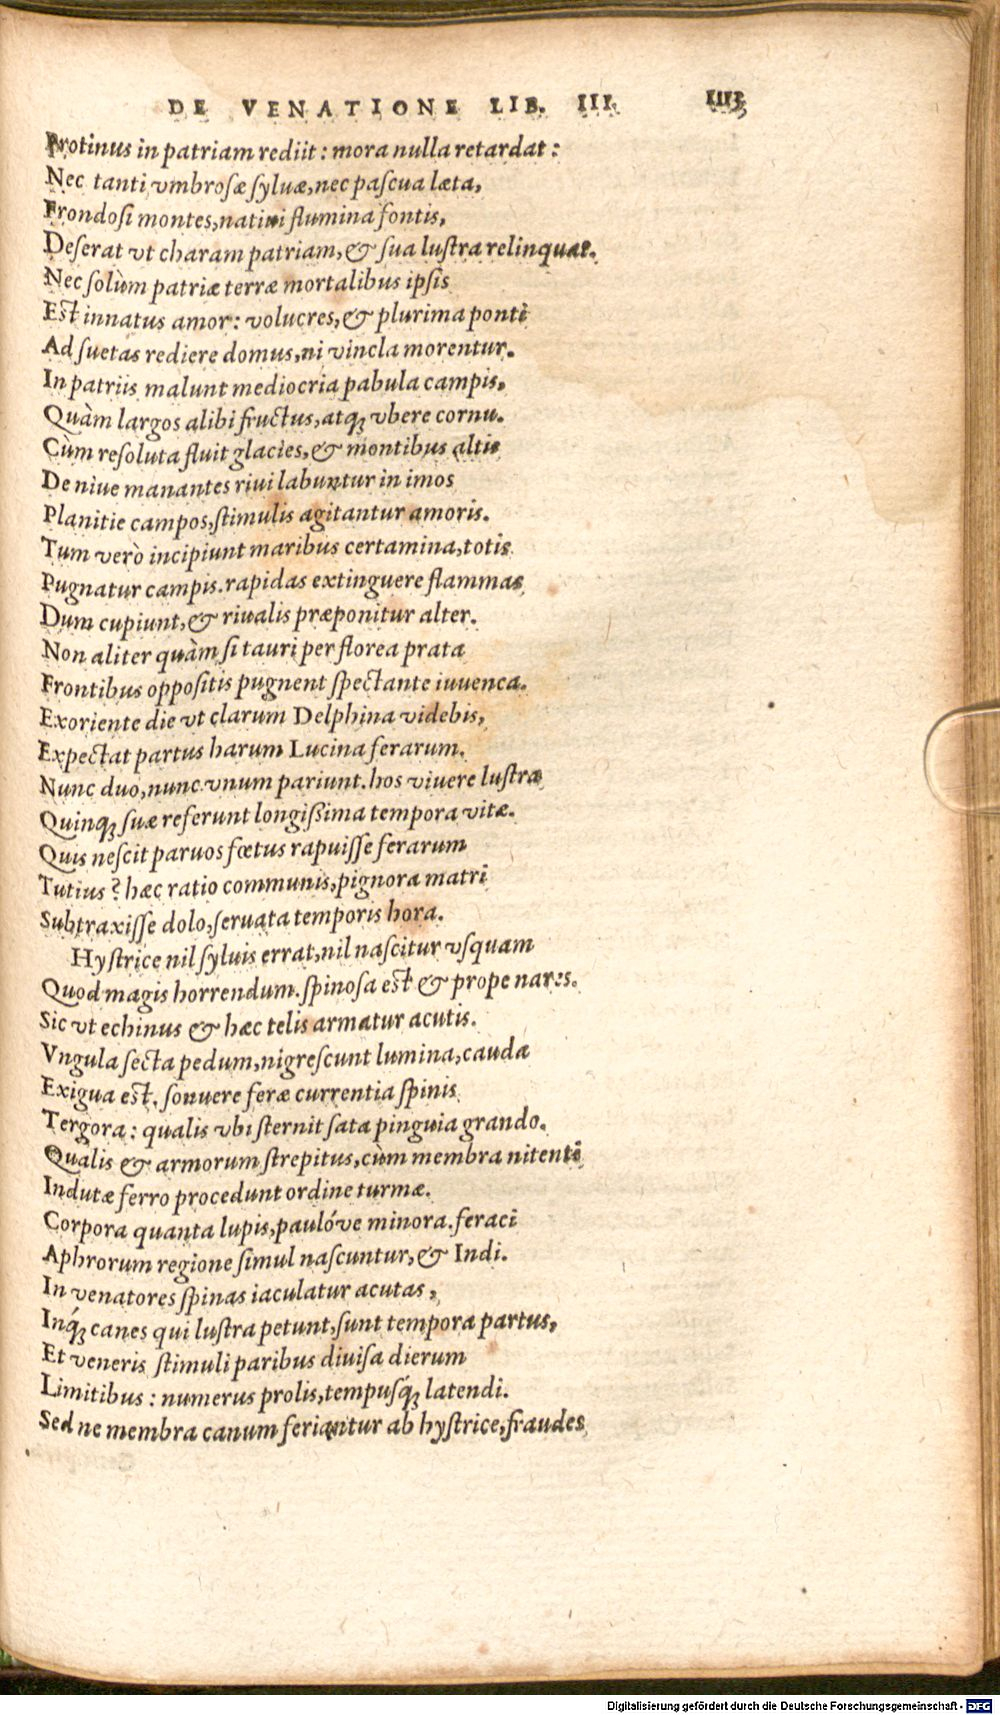 DE VENATIONE LIB. III. IIII
Protinus in patriam rediit: mora nulla retardat:
Nec tanti vmbrosæ syluæ, nec pascua læta,
Frondosi montes, natiui flumina fontis,
Deserat vt charam patriam, & sua lustra relinquat.
Nec solùm patriæ terræ mortalibus ipsis
Est innatus amor: volucres, & plurima ponti
Ad suetas rediere domus, ni vincla morentur.
In patriis malunt mediocria pabula campis,
Quàm largos alibi fructus, atq; vbere cornu.
Cùm resoluta fluit glacies, & montibus altis
De niue manantes riui labuntur in imos
Planitie campos, stimulis agitantur amoris.
Tum verò incipiunt maribus certamina, totis
Pugnatur campis. rapidas extinguere flammas
Dum cupiunt, & riualis præponitur alter.
Non aliter quàm si tauri per florea prata
Frontibus oppositis pugnent spectante iuuenca.
Exoriente die vt clarum Delphina videbis,
Expectat partus harum Lucina ferarum.
Nunc duo, nunc vnum pariunt. hos viuere lustra
Quinq; suæ referunt longissima tempora vitæ.
Quis nescit paruos fœtus rapuisse ferarum
Tutius? hæc ratio communis, pignora matri
Subtraxisse dolo, seruata temporis hora.
Hystrice nil syluis errat, nil nascitur vsquam
Quod magis horrendum. spinosa est & prope nares.
Sic vt echinus & hæc telis armatur acutis.
Vngula secta pedum, nigrescunt lumina, cauda
Exigua est. sonuere feræ currentia spinis
Tergora: qualis vbi sternit sata pinguia grando.
Qualis & armorum strepitus, cùm membra nitenti
Indutæ ferro procedunt ordine turmæ.
Corpora quanta lupis, paulóve minora. feraci
Aphrorum regione simul nascuntur, & Indi.
In venatores spinas iaculatur acutas,
Inq́; canes qui lustra petunt, sunt tempora partus,
Et veneris stimuli paribus diuisa dierum
Limitibus: numerus prolis, tempusq́; latendi.
Sed ne membra canum feriantur ab hystrice, fraudes
Digitalisierung gefördert durch die Deutsche Forschungsgemeinschaft - DFG